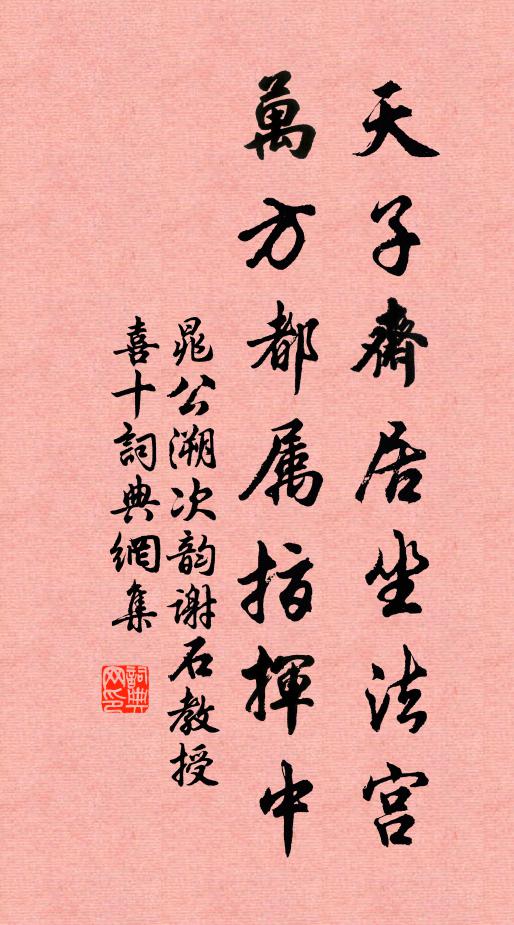 天子齋居坐法宫
萬方都属指揮中
晁公溯次韵谢石教授
喜十詞典網集
詞典网印